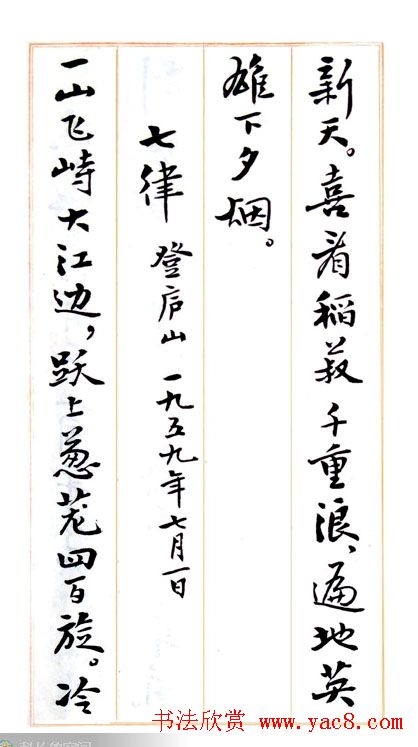 新天。喜看稻菽千重浪、遍地英
雄下夕烟。
七律 登庐山 一九五九年七月一日
一山飞峙大江边，跃上葱茏四百旋。冷
书法欣赏 www.yac8.com